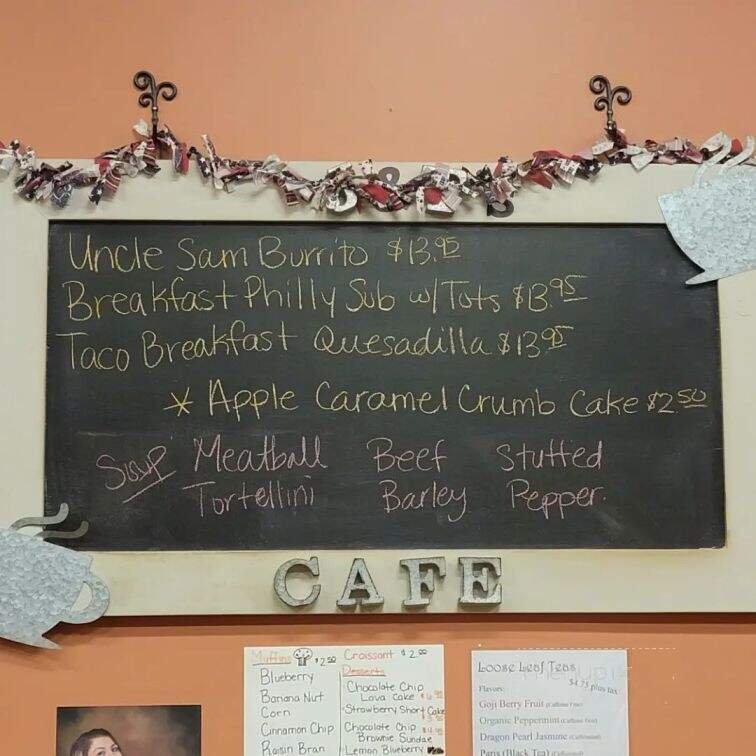 Uncle Sam Burrito $13.95
Breakfast Philly Sub w/Tots $13.95
Taco Breakfast Quesadilla $13.95
* Apple Caramel Crumb Cake $2.50
Soup Meatball Beef Stuffed
Tortellini Barley Pepper.
CAFE
Muffins $2.50
Blueberry
Banana Nut
Corn
Cinnamon Chip
Raisin Bran
Croissant $2.00
Desserts
Chocolate Chip
Lava Cake
Strawberry Short Cake
Chocolate Chip
Brownie Sundae
Lemon Blueberry
Loose Leaf Teas
$4.75 plus tax
Flavors:
Goji Berry Fruit (Caffeine Free)
Organic Peppermint (Caffeine Free)
Dragon Pearl Jasmine (Caffeinated)
Paris (Black Tea) (Caffeinated)